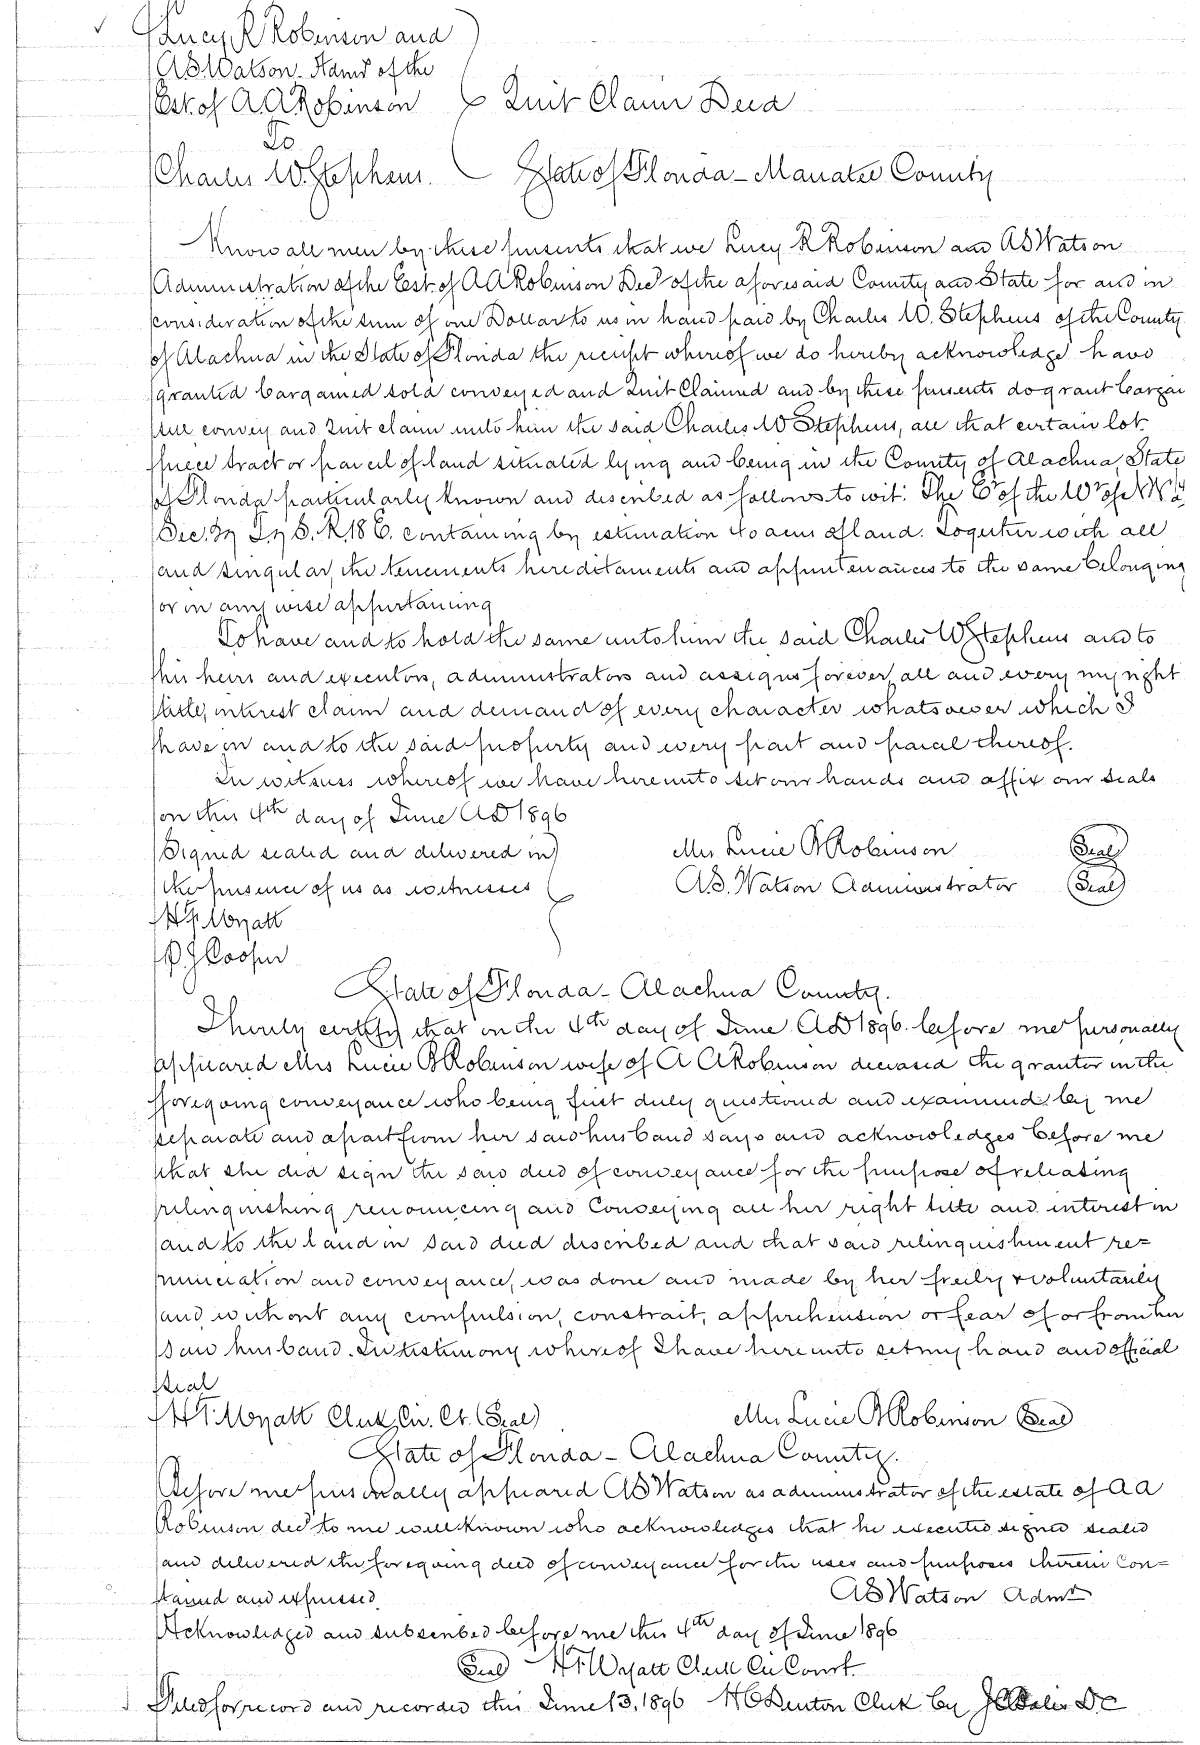 Lucy R Robinson and
A S Watson Admr of the
Est. of A. A. Robinson Quit Claim Deed
To
Charles W. Stephens. State of Florida - Manatee County
Know all men by these presents that we Lucy R Robinson and A S Watson
Administration of the Est. of A A Robinson Decd of the aforesaid County and State for and in
consideration of the sum of one Dollar to us in hand paid by Charles W. Stephens of the County
of Alachua in the State of Florida the receipt whereof we do hereby acknowledge have
granted bargained sold conveyed and Quit Claimed and by these presents do grant bargain
sell convey and Quit claim unto him the said Charles W Stephens, all that certain lot
piece tract or parcel of land situated lying and being in the County of Alachua, State
of Florida particularly known and described as follows to wit: The E½ of the W½ of N W¼
Sec. T S. R. 18 E. containing by estimation 40 acres of land. Together with all
and singular, the tenements hereditaments and appurtenances to the same belonging
or in any wise appertaining
To have and to hold the same unto him the said Charles W Stephens and to
his heirs and executors, administrators and assigns forever, all and every my right
title, interest claim and demand of every character whatsoever which I
have in and to the said property and every part and parcal thereof.
In witness whereof we have hereunto set our hands and affix our seals
on this 4th day of June AD 1896
Signed sealed and delivered in Mrs Lucie R Robinson Seal
the presence of us as witnesses A. S. Watson Administrator Seal
H F Wyatt
P J Cooper
State of Florida - Alachua County.
I hereby certify that on the 4th day of June AD 1896. before me personally
appeared Mrs Lucie R Robinson wife of A A Robinson deceased the grantor in the
foregoing conveyance who being first duly questioned and examined by me
separate and apart from her said husband says and acknowledges before me
that she did sign the said deed of conveyance for the purpose of releasing
relinquishing renouncing and Conveying all her right title and interest in
and to the land in said deed described and that said relinquishment re=
nunciation and conveyance, was done and made by her freely & voluntarily
and without any compulsion, constrait, apprehension or fear of or from her
said husband. In testimony whereof I have hereunto set my hand and official
seal
H F. Wyatt Clerk Cir. Ct. (Seal) Mrs Lucie R Robinson Seal
State of Florida - Alachua County.
Before me personally appeared A S Watson as administrator of the estate of A A
Robinson decd to me well known who acknowledges that he executed signed sealed
and delivered the foregoing deed of conveyance for the uses and purposes therein con=
tained and expressed. A S Watson Admr
Acknowledged and subscribed before me this 4th day of June 1896
Seal H F Wyatt Clerk Cir Court.
Filed for record and recorded this June 13, 1896 H C Denton Clerk by D. C